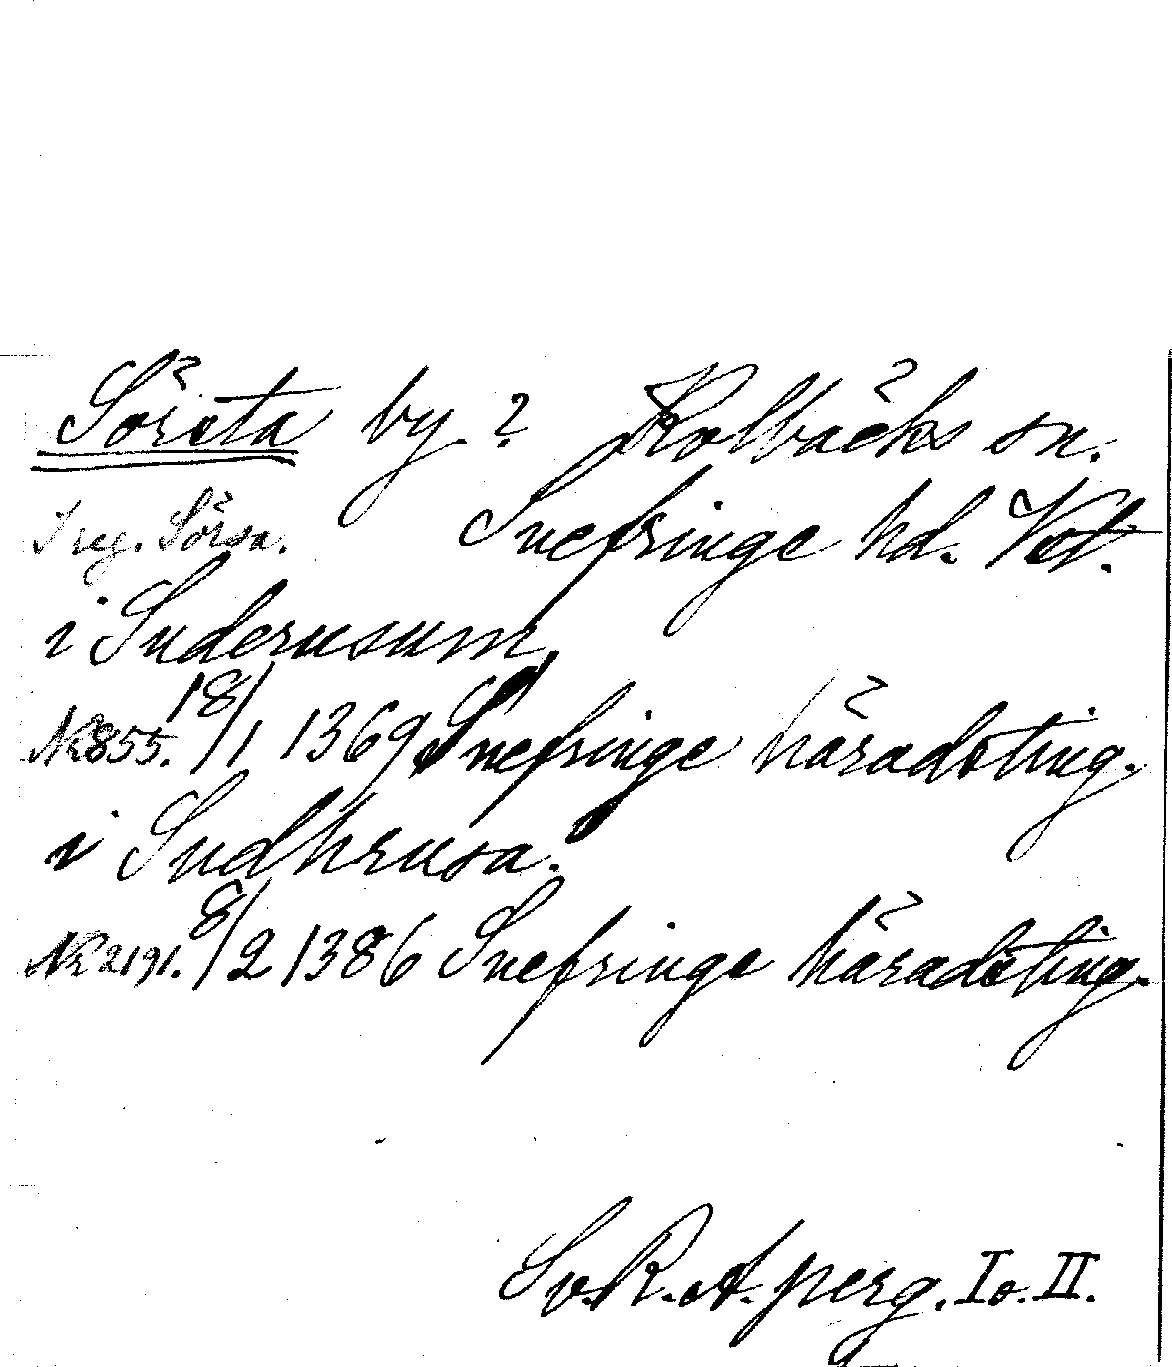 Sörsta by? Kolbäcks sn.
I reg. Sörsa. Snefringe hd. Vstl.
i Suderusum,
Nr 855. 18/1 1369 Snefringe häradsting.
i Sudhrusa.
Nr 2191. 8/2 1386 Snefringe häradsting.
Sv. R. A. perg. I o. II.